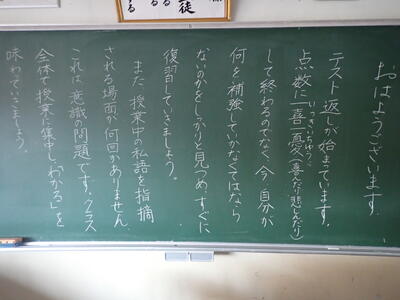 徒
る
る
おはようございます。
テスト返しが始まっています。
点数に一喜一憂(喜んだり悲しんだり)
いっきいちゆう
して終わるのでなく、今、自分が
何を補強していかなくてはなら
ないのかをしっかりと見つめ、すぐに
復習していきましょう。
また、授業中の私語を指摘
される場面が何回かありません
これは、意識の問題です。クラス
全体で授業に集中し、「わかる」を
味わっていきましょう。